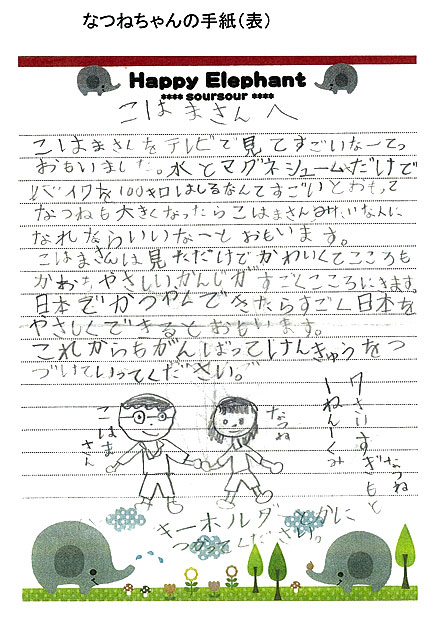 なつねちゃんの手紙(表)
Happy Elephant
**** soursour ****
こはまさんへ
こはまさんをテレビで見てすごいなーてっ
おもいました。水とマグネシュームだけで
バイクを100キロはしるなんてすごいとおもって
なつねも大きくなったらこはまさんみたいな人に
なれたらいいなーとおもいます。
こはまさんは見ただけでかわいくてこころも
やさしいかんじがすごくこころにきます。
日本でかつやくできたらすごく日本を
やさしくできるとおもいます。
これからもがんばってけんきゅうをつ
づけていってください。
こはまさん
なつね
7さいすぎもとなつね
一ねん一くみ
キーホルダーとかに
つかってください。